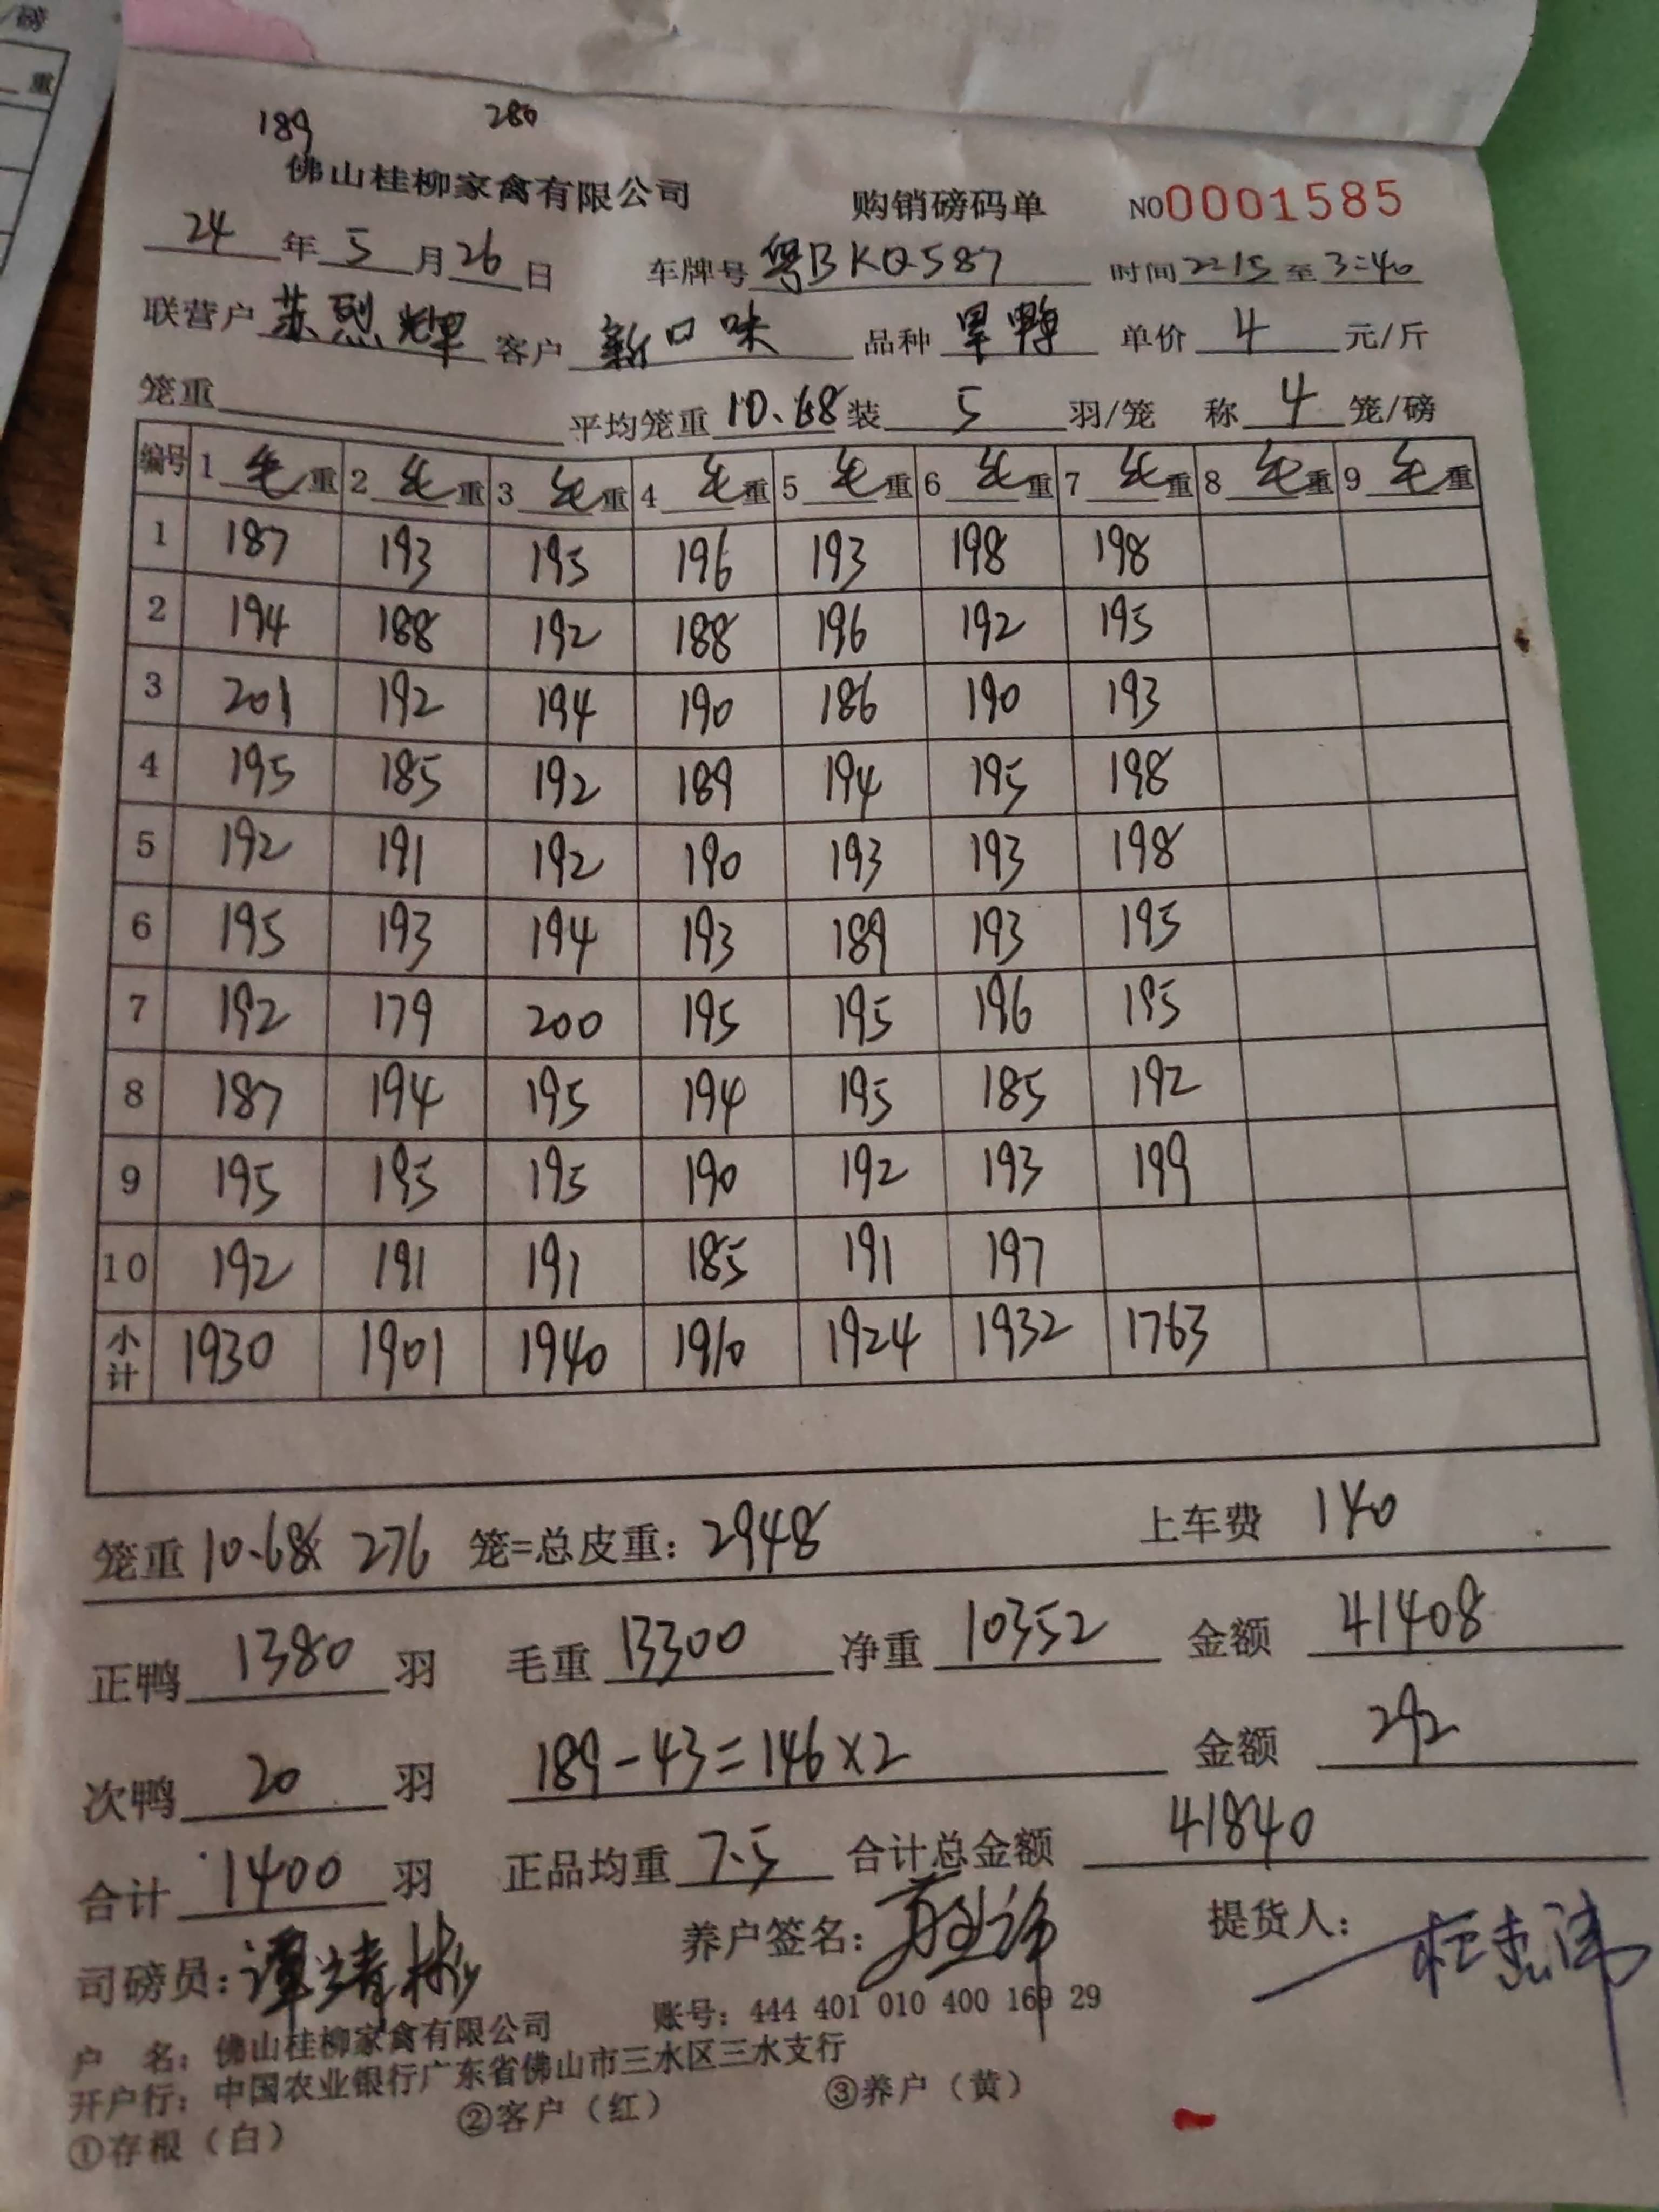 磅
重
189 280
佛山桂柳家禽有限公司 购销磅码单 NO0001585
24年5月26日 车牌号粤BKQ587 时间22:15至3:40
联营户 苏烈辉 客户 新口味 品种 旱鸭 单价 4 元/斤
笼重 平均笼重 10.68 装 5 羽/笼 称 4 笼/磅
编号 1毛重 2毛重 3毛重 4毛重 5毛重 6毛重 7毛重 8毛重 9毛重
1 187 193 195 196 193 198 198
2 194 188 192 188 196 192 195
3 201 192 194 190 186 190 193
4 195 185 192 189 194 195 198
5 192 191 192 190 193 193 198
6 195 193 194 193 189 193 195
7 192 179 200 195 195 196 195
8 187 194 195 194 195 185 192
9 195 195 195 190 192 193 199
10 192 191 191 185 191 197
小计 1930 1901 1940 1910 1924 1932 1763
笼重10.68x 276 笼=总皮重：2948 上车费 140
正鸭 1380 羽 毛重 13300 净重 10352 金额 41408
次鸭 20 羽 189-43=146×2 金额 292
合计 1400 羽 正品均重 7.5 合计总金额 41840
司磅员：谭靖彬 养户签名： 提货人：
户 名：佛山桂柳家禽有限公司 账号：444 401 010 400 169 29
开户行：中国农业银行广东省佛山市三水区三水支行
①存根（白） ②客户（红） ③养户（黄）